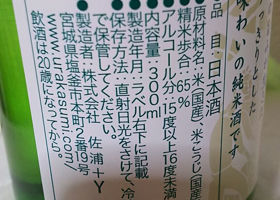 っきりとした
味わいの純米酒です
品目:日本酒
●原材料名:米(国産)、米こうじ(国産)
精米歩合:65%
アルコール分:15度以上16度未満
●内容量:300ml
●製造年月:ラベル右下に記載
●保存方法:直射日光をさけて、冷
で保管してください。
●製造者:株式会社 佐浦 +Y
宮城県塩釜市本町2番19号
www.urakasumi.com
飲酒は20歳になってから。